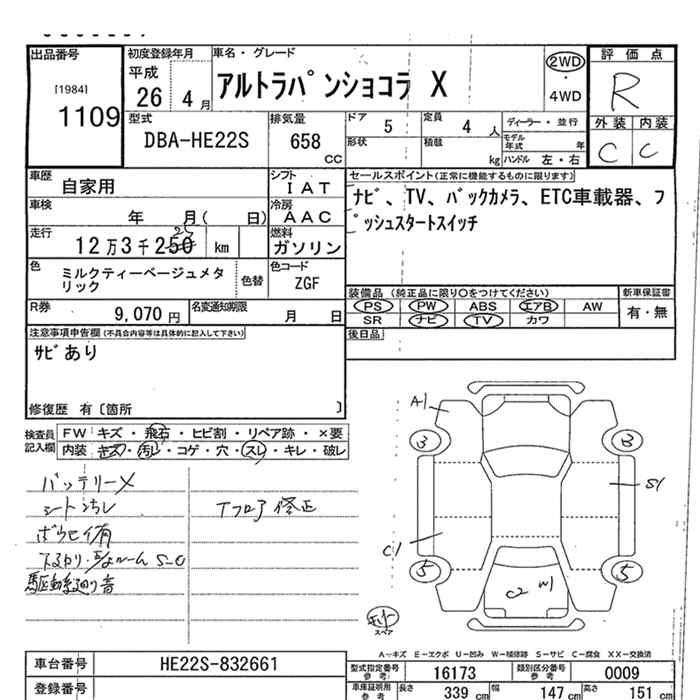 出品番号
[1984]
1109
初度登録年月
平成
26 4月
車名・グレード
アルトラパンショコラ X
2WD
・
4WD
評価点
R
外装 内装
C C
型式
DBA-HE22S
排気量
658
CC
ドア 5
形状
定員 4 人
積載 kg
ディーラー・並行
モデル年式 年
ハンドル 左・右
車歴
自家用
シフト
IAT
車検
年 月( 日)
冷房
AAC
走行
12万3千250 km
燃料
ガソリン
色
ミルクティーベージュメタ
リック
色替
色コード
ZGF
R券
9,070 円
名変通知期限
月 日
セールスポイント(正常に機能するものに限ります)
ナビ、TV、バックカメラ、ETC車載器、フ
゚ッシュスタートスイッチ
装備品 (純正品に限り○をつけてください)
PS PW ABS エアB AW
SR ナビ TV カワ
新車保証書
有・無
後日品
注意事項申告欄(不具合内容等は具体的に記入して下さい)
サビあり
修復歴 有〔箇所 〕
検査員
記入欄
FW キズ・飛石・ヒビ割・リペア跡・×要
内装 キズ・汚レ・コゲ・穴・スレ・キレ・破レ
バッテリーX
Tフロア修正
駆動系廻り音
A1
3
3
S1
C1
5
5
C2 W1
スペア
A―キズ E―エクボ U―凹み W―補修跡 S―サビ C―腐食 XX―交換済
車台番号
HE22S-832661
登録番号
型式指定番号
参考
16173
類別区分番号
参考
0009
車庫証明用
参考
長さ 339 cm
幅 147 cm
高さ 151 cm